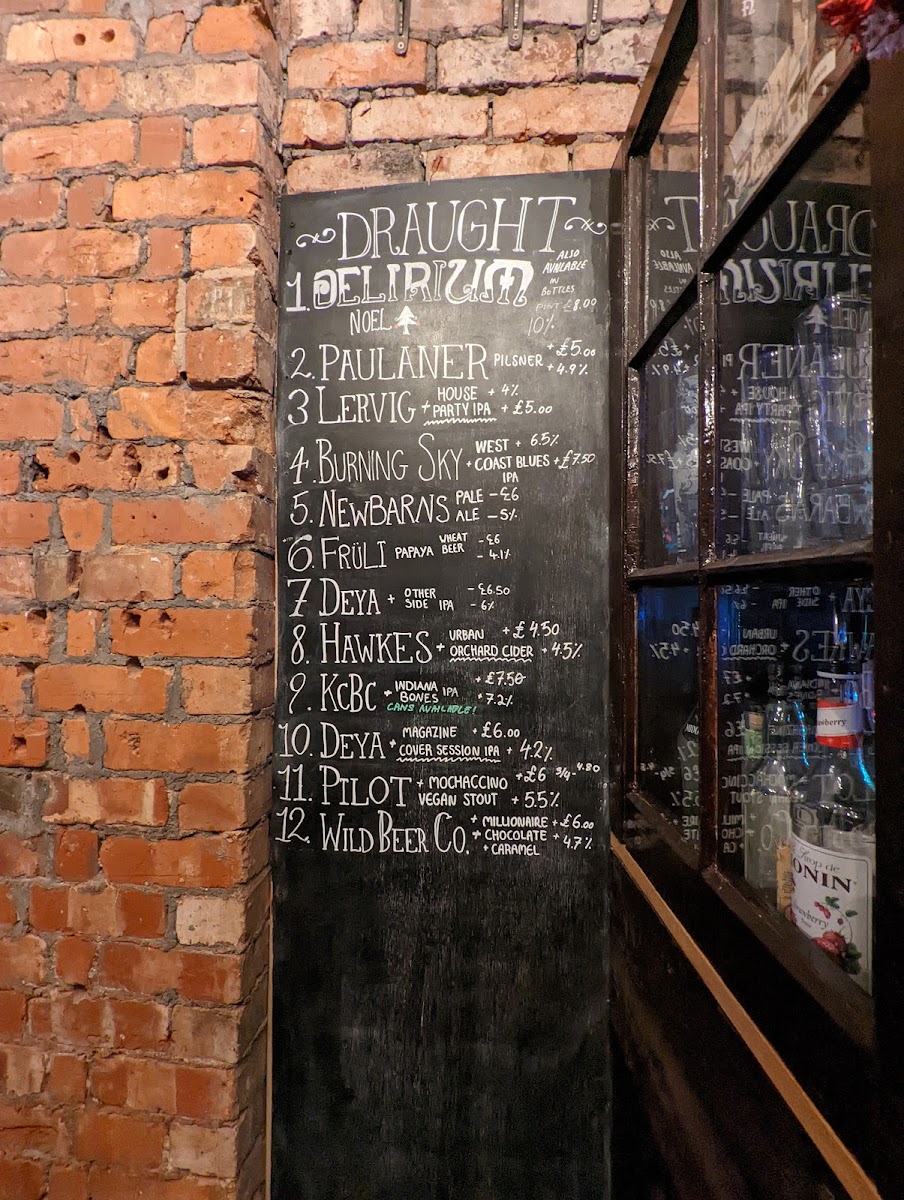 DRAUGHT
1. DELIRIUM
NOEL
ALSO
AVAILABLE
IN
BOTTLES
PINT £8.00
10%
2. PAULANER PILSNER + £5.00
+ 4.9%
3 LERVIG + HOUSE + 4%
PARTY IPA + £5.00
4. BURNING SKY WEST + 6.5%
+ COAST BLUES + £7.50
IPA
5. NEWBARNS PALE - £6
ALE - 5%
6. FRÜLI PAPAYA WHEAT BEER - £6
- 4.1%
7 DEYA + OTHER SIDE IPA - £6.50
- 6%
8. HAWKES + URBAN + £4.50
ORCHARD CIDER + 4.5%
9. KCBC + INDIANA BONES IPA + £7.50
+ 7.2%
CANS AVAILABLE!
10. DEYA + MAGAZINE + £6.00
COVER SESSION IPA + 4.2%
11. PILOT + MOCHACCINO + £6 3/4 - 4.80
VEGAN STOUT + 5.5%
12. WILD BEER CO. + MILLIONAIRE + £6.00
+ CHOCOLATE + 4.7%
+ CARAMEL
ONIN